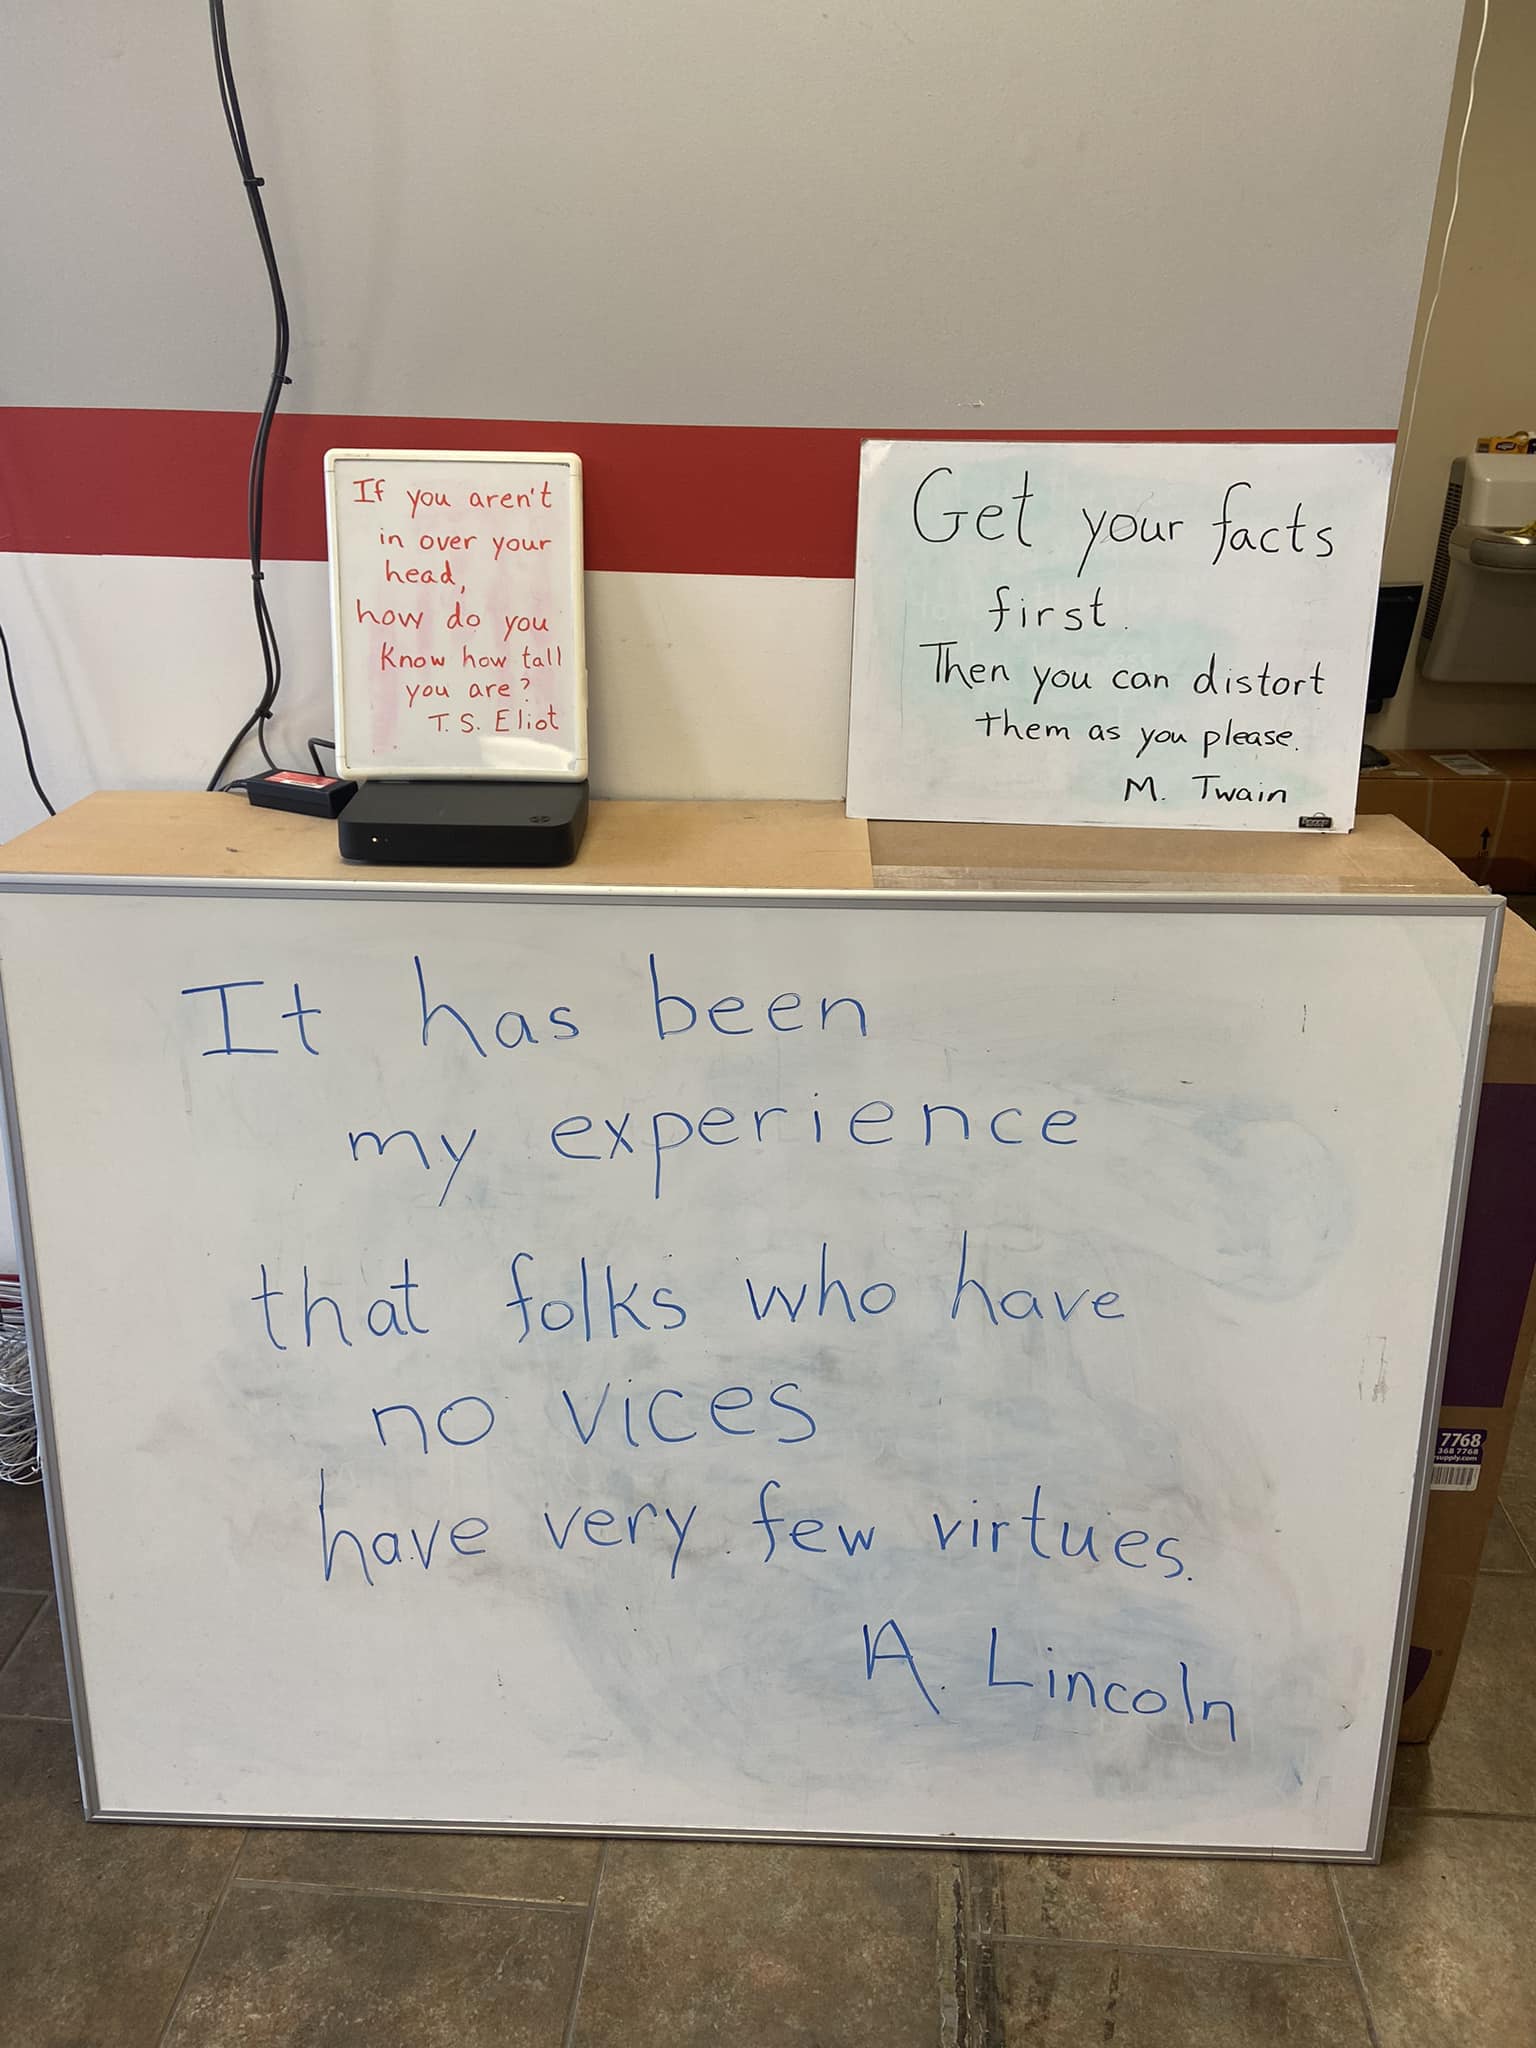 If you aren't
in over your
head,
how do you
Know how tall
you are?
T. S. Eliot
Get your facts
first.
Then you can distort
them as you please.
M. Twain
It has been
my experience
that folks who have
no vices
have very few virtues.
A. Lincoln
7768
368 7768